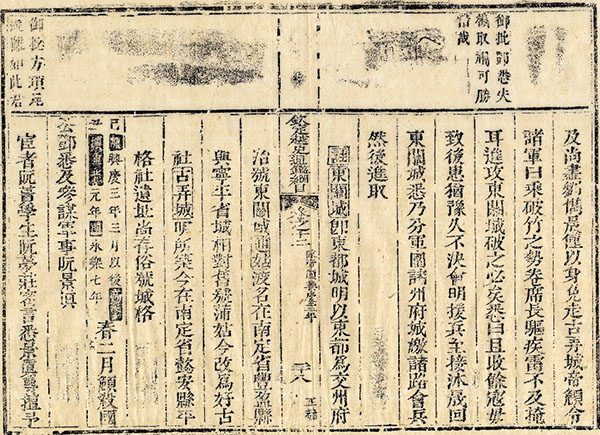 御批鄧悉失
機取禍可勝
哉
及尚書儁晟僅以身免走古弄城帝顧令
諸軍曰乘破竹之勢卷席長驅疾雷不及掩
耳進攻東關城破之必矣悉曰且收餘寇毋
致後患猶豫久不決會明援兵至接沐晟回
東關城悉乃分軍圍諸州府城檄諸路會兵
然後進取
註東關城即東都城明以東都為交州府
治號東關城逋姑渡名在南定省豐盈縣
欽定越史通鑑綱目
正編
與寧平省城相對舊號蒲姑今改為好古
社古弄城明所築今在南定省懿安縣平
格社遺址尚存俗號城格
己丑
興慶三年三月以後
元年明永樂七年
春二月顧殺國
公鄧悉及參謀軍事阮景真
宦者阮簀學生阮夢莊密言悉景真專擅予
御批方項危
難如此君